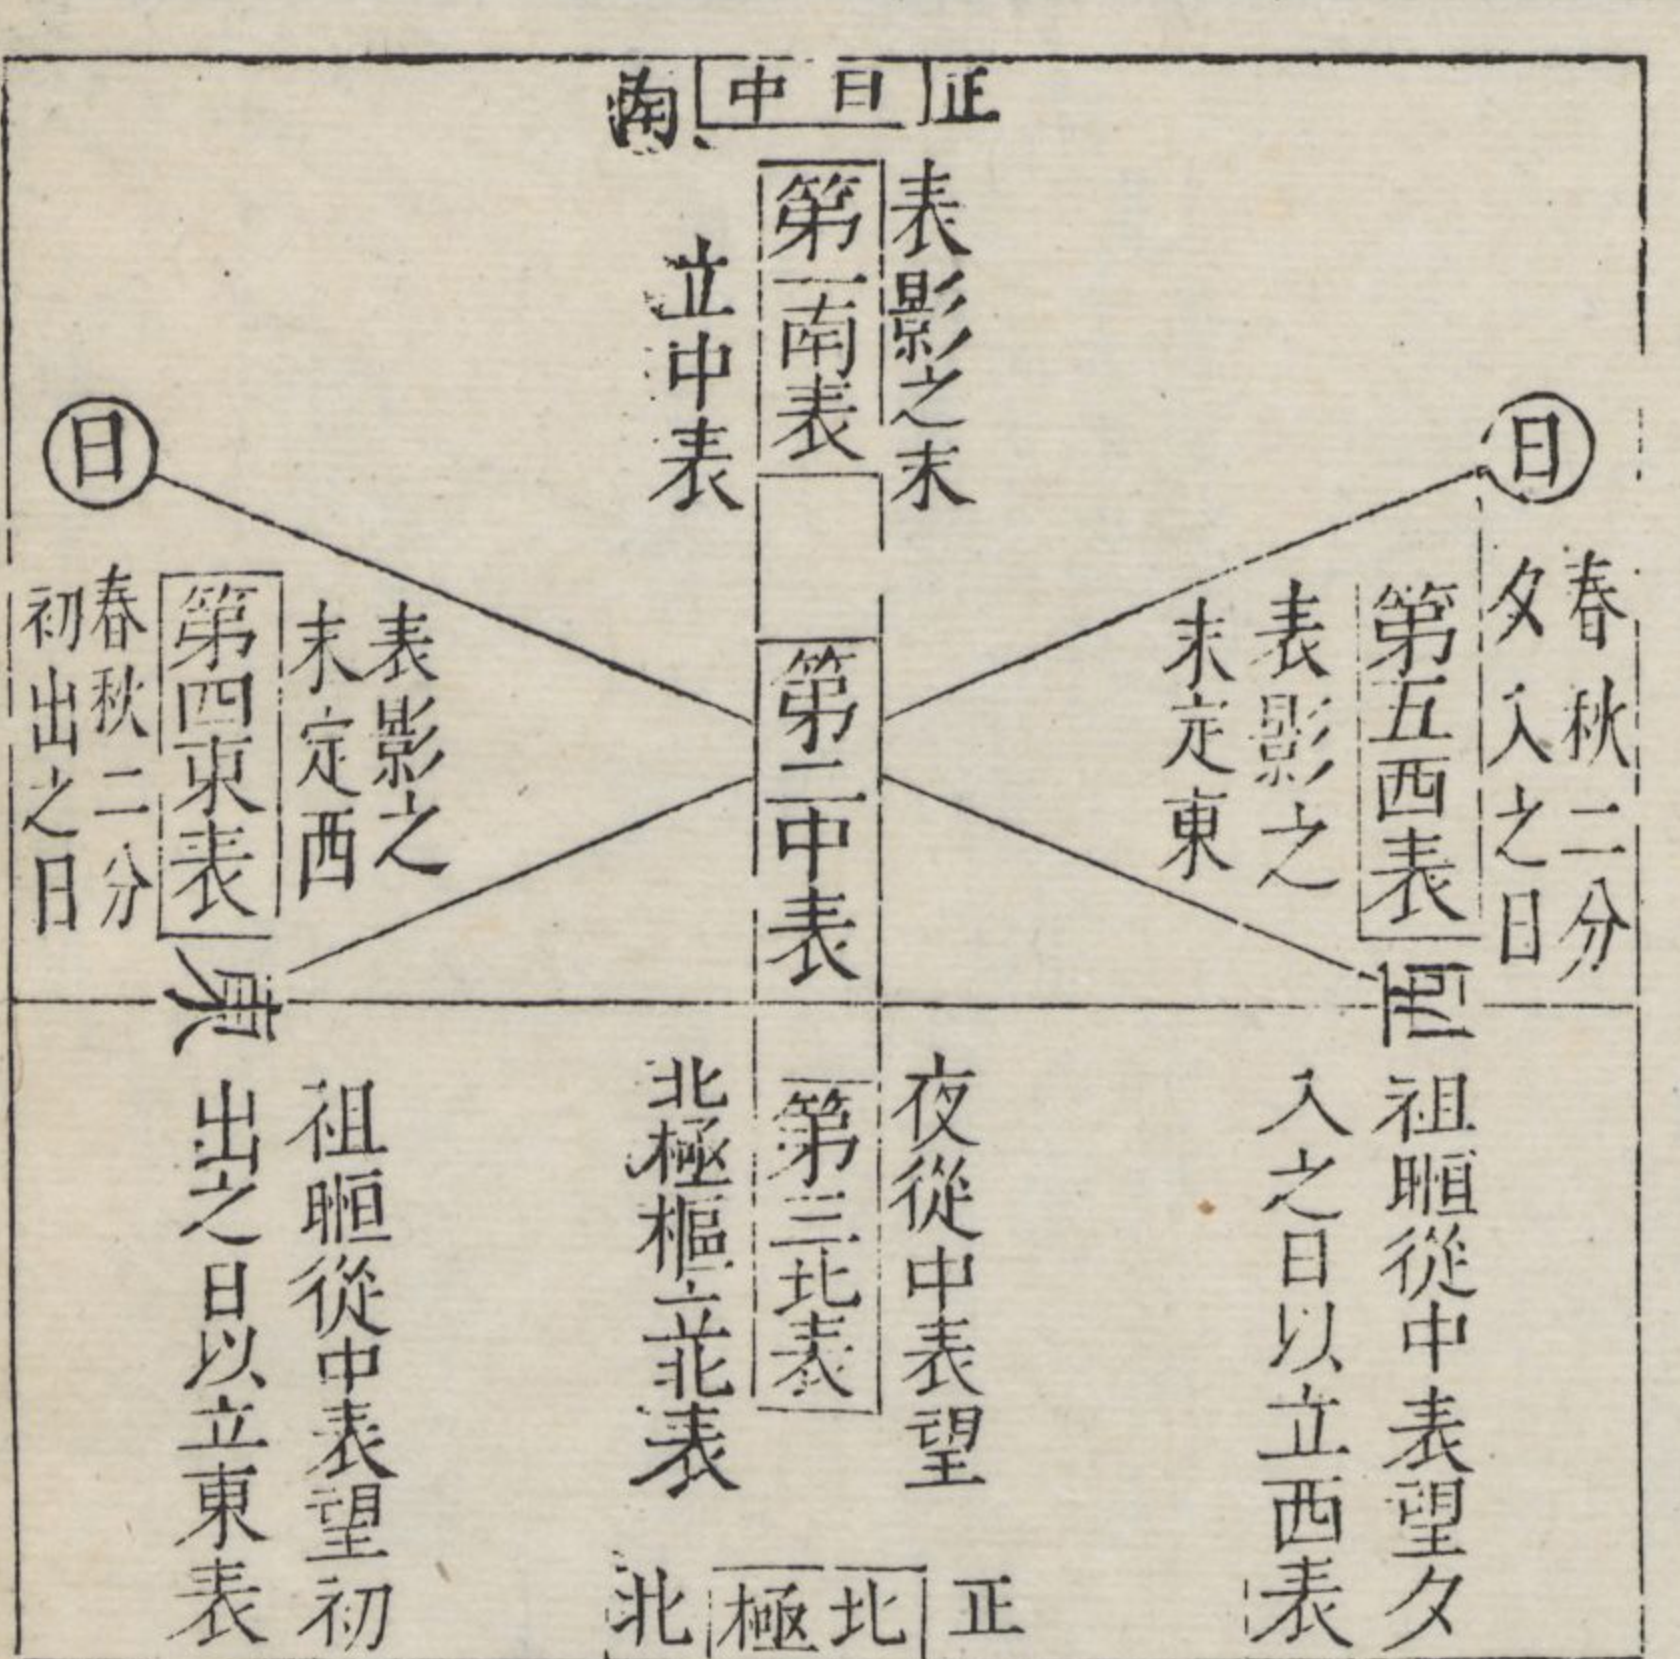 正日中南
表影之末
第一南表
立中表
日
春秋二分
夕入之日
第五西表
表影之
末定東
西
第二中表
日
表影之
末定西
第四東表
春秋二分
初出之日
東
祖暅從中表望夕
入之日以立西表
夜從中表望
第三北表
北極樞立北表
祖暅從中表望初
出之日以立東表
正北極北